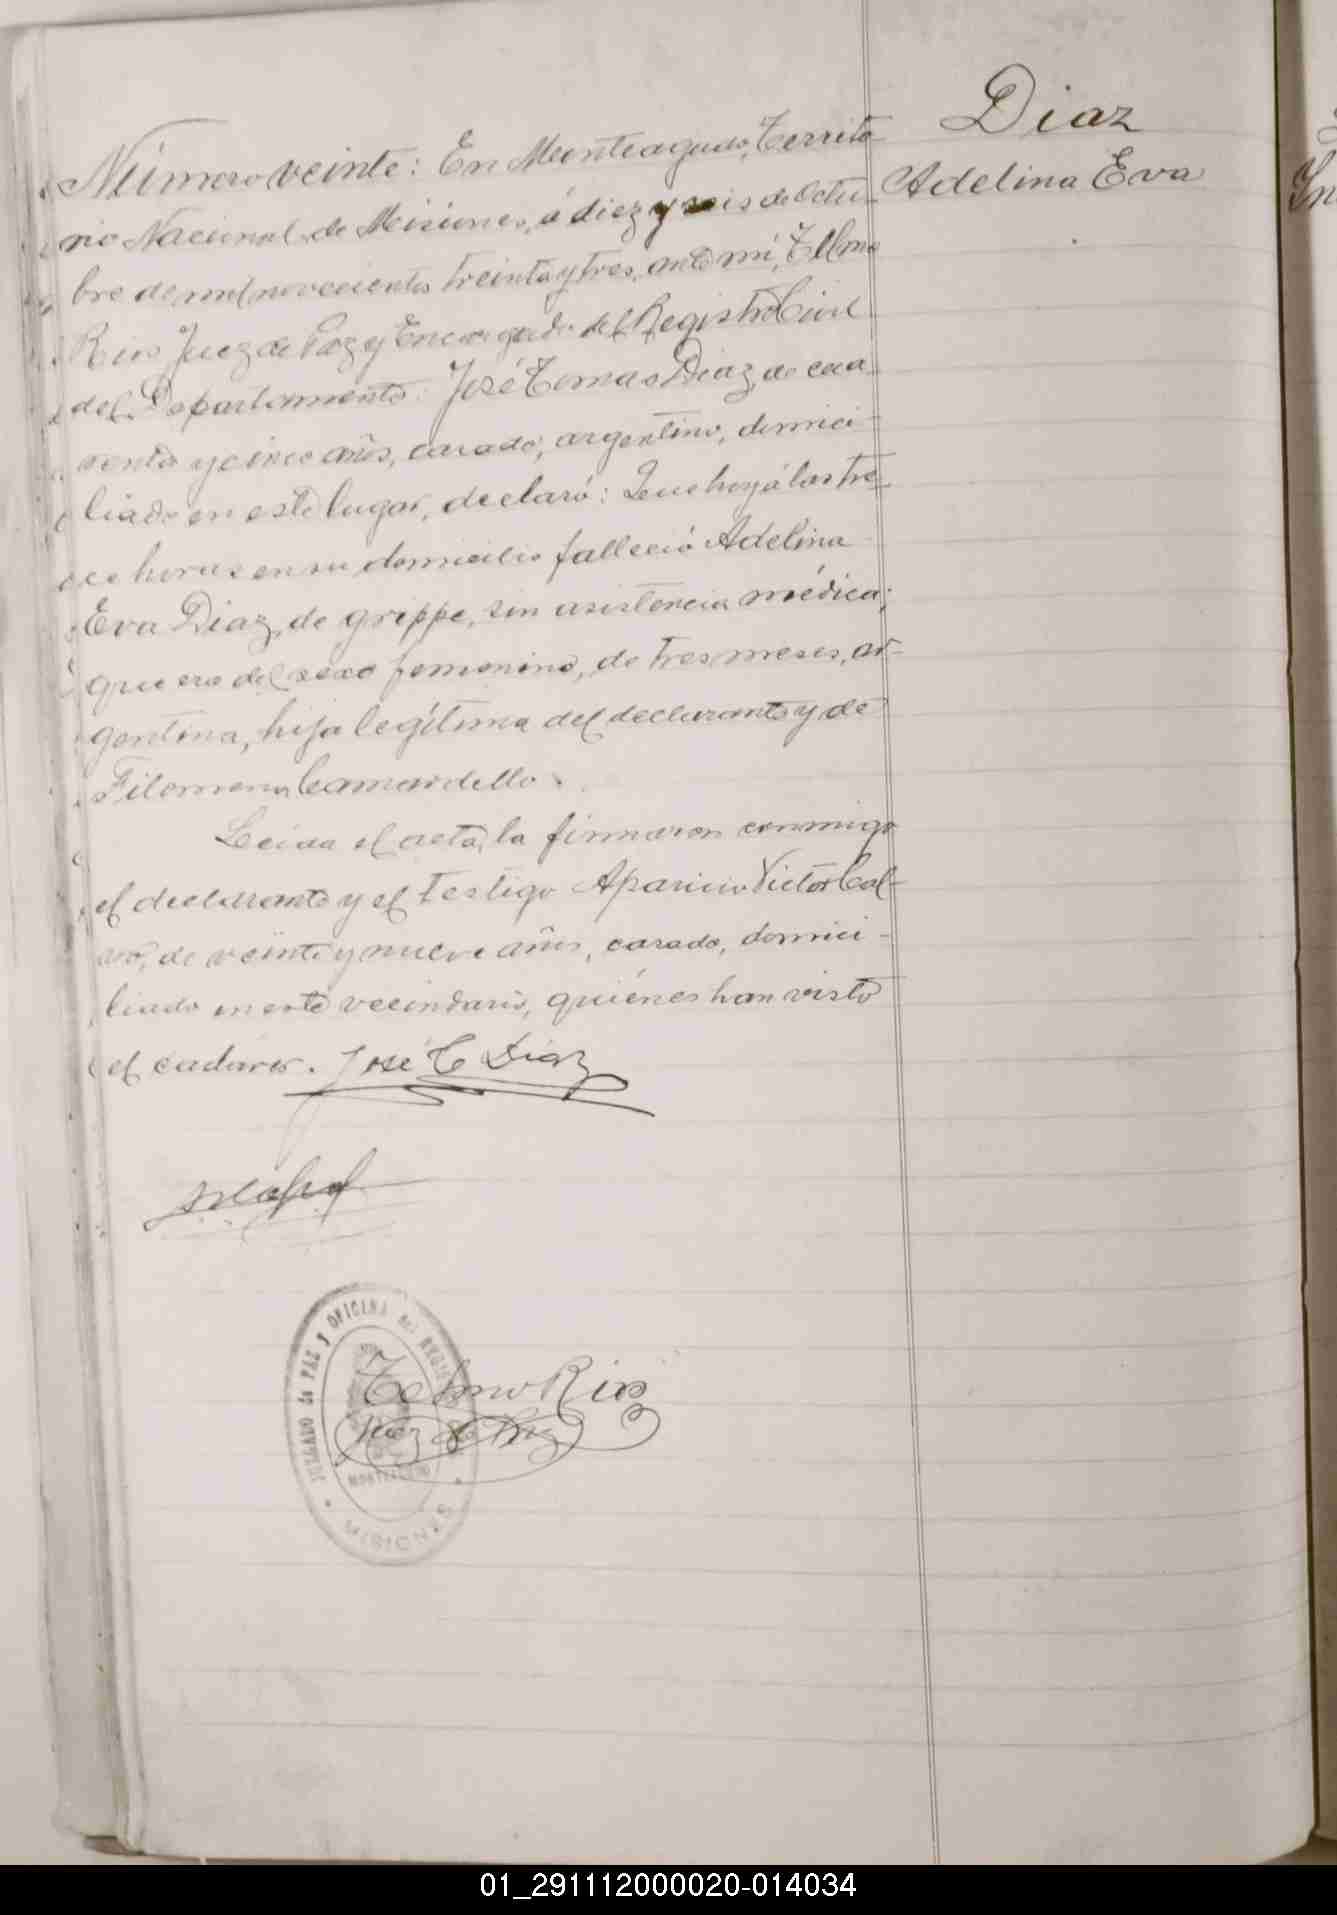 Diaz
Adelina Eva
Número veinte: En Monteagudo, Territo
rio Nacional de Misiones, á diez y seis de Octu-
bre de mil novecientos treinta y tres, ante mí, Telmo
Rios Juez de Paz y Encargado del Registro Civil
del Departamento: José Tomas Diaz, de cua-
renta y cinco años, casado, argentino, domici-
liado en este lugar, declaró: Que hoy á las tre-
ce horas en su domicilio falleció Adelina
Eva Diaz, de grippe, sin asistencia médica;
que era del sexo femenino, de tres meses, ar-
gentina, hija legítima del declarante y de
Filomena Camardello.
Leida el acta, la firmaron conmigo
el declarante y el testigo Aparicio Victor Cal-
de veinte y nueve años, casado, domici-
liado en este vecindario, quiénes han visto
el cadáver. José T Diaz
JUZGADO de PAZ y OFICINA del
Telmo Rios
Juez de Paz
MISIONES
01_291112000020-014034